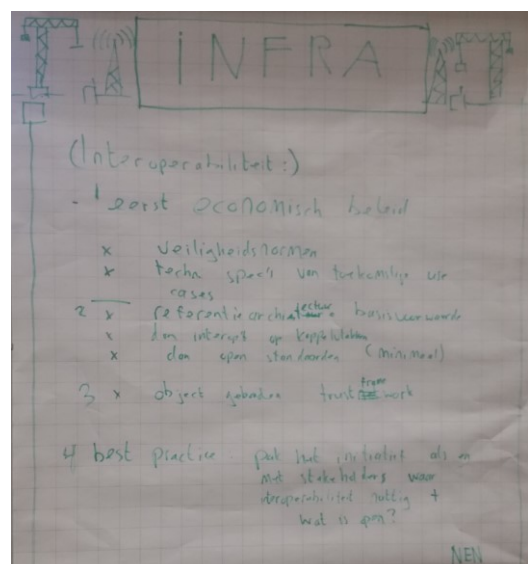 INFRA
(Interoperabiliteit:)
- 1 eerst economisch beleid
x veiligheidsnormen
x techn spec's van toekomstige use
cases
2 x referentie architectuur basisvoorwaarde
x dan interop op
x dan open standaarden (minimaal)
3 x object gebonden trust frame work
4 best practice - pak het initiatief als
met stakeholders waar
interoperabiliteit nuttig +
wat is open?
NEN